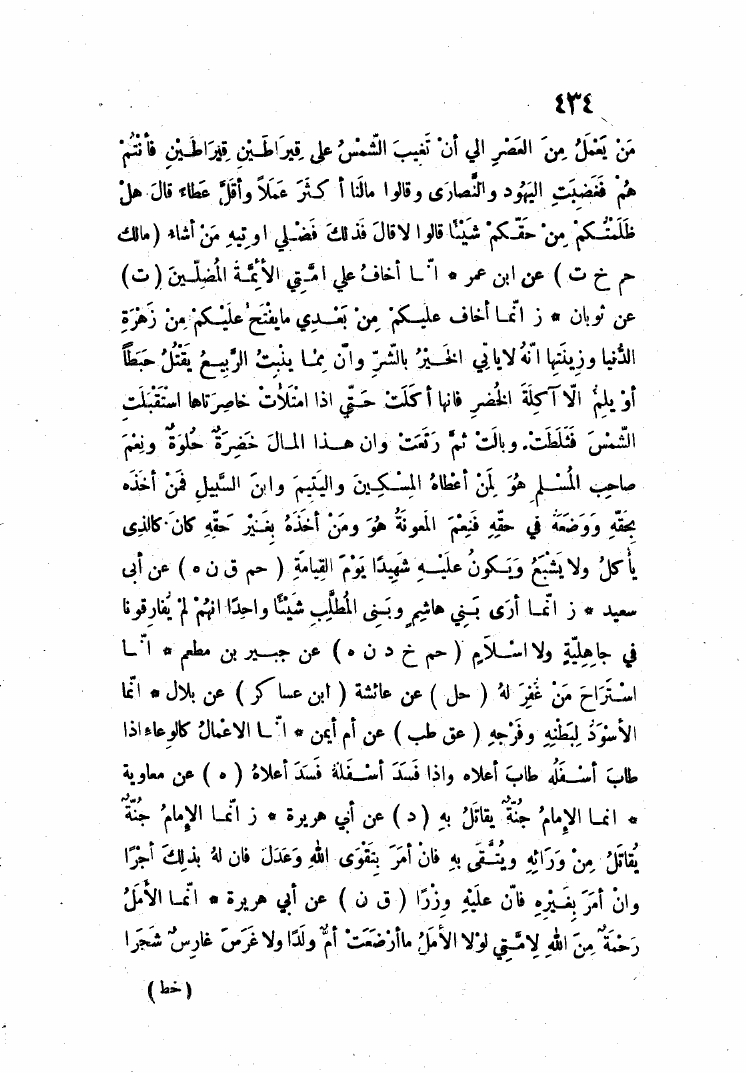 ٤٣٤
مَنْ يَعْمَلُ مِنَ العَصْرِ الي أنْ تَغِيبَ الشَّمْسُ على قِيرَاطَـيْنِ قِيرَاطَـيْنِ فأنْتُمْ
هُمْ فَغَضِبَتِ اليَهُود والنَّصارَى وقالوا مالَنا أكثَرَ عَمَلاً وأقَلَّ عَطاءً قالَ هلْ
ظَلَمْتُـكمْ مِنْ حَقِّـكمْ شَيْئًا قالوا لا قالَ فَذلكَ فَضْلي اوتِيهِ مَنْ أشاء (مالك
حم خ ت) عن ابن عمر * انَّمـا أخافُ علي امَّتِي الأئِمَّةَ المُضِلِّينَ (ت)
عن ثوبان * ز انَّمـا أخاف عليـكمْ مِنْ بَعْـدِي مايفْتَحُ علَيْـكمْ مِنْ زَهْرَةِ
الدُّنيا وزِينَتِها انّهُ لاياتِي الخَيْرُ بالشَّرِّ وانّ مِمّا ينْبِتُ الرَّبِيـعُ يَقْتُلُ حَبَطاً
أوْ يلِمُّ الّا آكِلَةَ الخُضرِ فانها أكَلَتْ حَـتَّى اذا امْتَلَأَتْ خاصِرَتاها اسْتَقْبَلَتِ
الشَّمْسَ فَثَلَطَتْ. وبالَتْ ثمَّ رَتَعَتْ وان هـذا المـالَ خَضِرَةٌ حُلوَةٌ ونِعْمَ
صاحِب المُسْلمِ هُوَ لِمَنْ أعْطاهُ المِسْكِـينَ واليَتِيمَ وابنَ السَّبِيلِ فَمَنْ أخذَه
بِحَقِّهِ وَوَضَعَهُ في حقِّهِ فَنِعْمَ المَعونَةُ هُوَ ومَنْ أخَذَهُ بِغَيْرِ حَقّهِ كانَ كالذِى
يأكلُ ولا يَشْبَعُ وَيَـكونُ علَيْـهِ شَهِيدًا يَوْمَ القِيامَةِ ( حم ق ن ه ) عن أبى
سعيد * ز انَّمـا أرَى بَـنِي هاشِمٍ وبَنِى المُطَّلِبِ شَيْئًا واحدًا انهُمْ لمْ يُفارِقونا
في جاهِلِيَّةٍ ولا اسْـلَامٍ ( حم خ د ن ه ) عن جبـير بن مطعم * انَّمـا
اسْـتَرَاحَ مَنْ غُفِرَ لهُ ( حل ) عن عائشة ( ابن عساكر ) عن بلال * انّما
الأسْوَدُ لِبَطْنِهِ وفَرْجِهِ ( عق طب ) عن أم أيمن * انَّمـا الاعْمالُ كالوِعاءِ اذا
طابَ أسْـفَلُه طابَ أعلاه واذا فَسَدَ أسْـفَلهُ فَسَدَ أعلاهُ ( ه ) عن معاوية
* انمـا الإمامُ جُنّةٌ يقاتَلُ بهِ ( د ) عن أبي هريرة * ز انّمـا الإمامُ جُنّةٌ
يُقاتَلُ مِنْ وَرَائِهِ ويُتَّـقَى بهِ فانْ أمَرَ بِتَقْوَى اللهِ وَعَدَلَ فان لهُ بذلِكَ أجْرًا
وانْ أمَرَ بِغَـيْرِهِ فانّ علَيْهِ وِزْرًا ( ق ن ) عن أبي هريرة * انّمـا الأمَلُ
رَحْمَةٌ مِنَ اللهِ لِامَّـتِي لوْلا الأمَلُ ماأرْضَعَتْ أمٌّ ولَدًا ولا غَرَسَ غارِسٌ شَجَرًا
( خط )